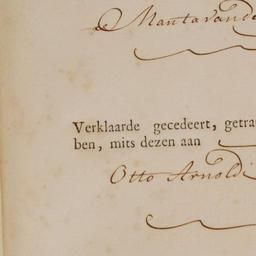 Verklaarde gecedeert, getra
ben, mits dezen aan
Otto Arnoldi